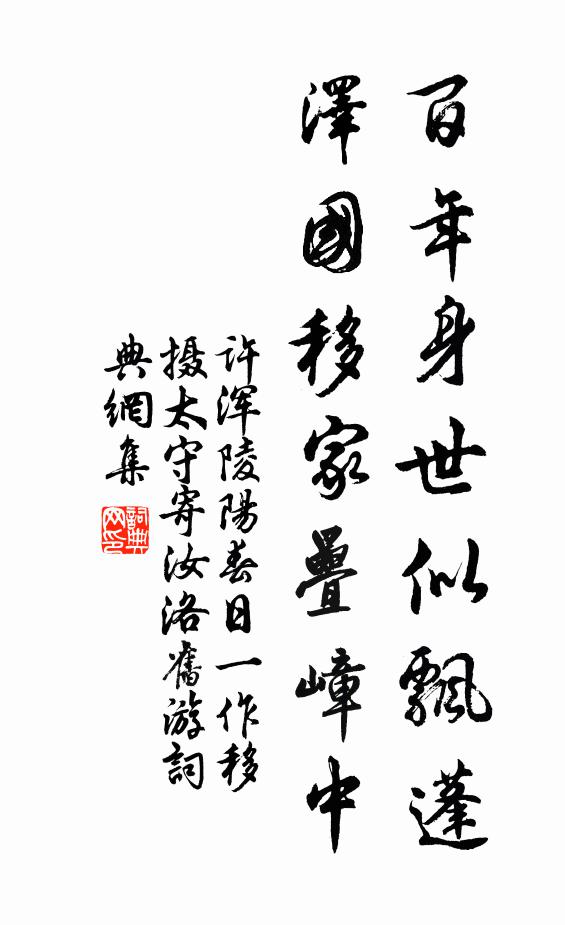 百年身世似飄蓬
澤國移家疊嶂中
许浑陵陽春日一作移
摄太守寄汝洛舊游詞
典網集
詞典网印